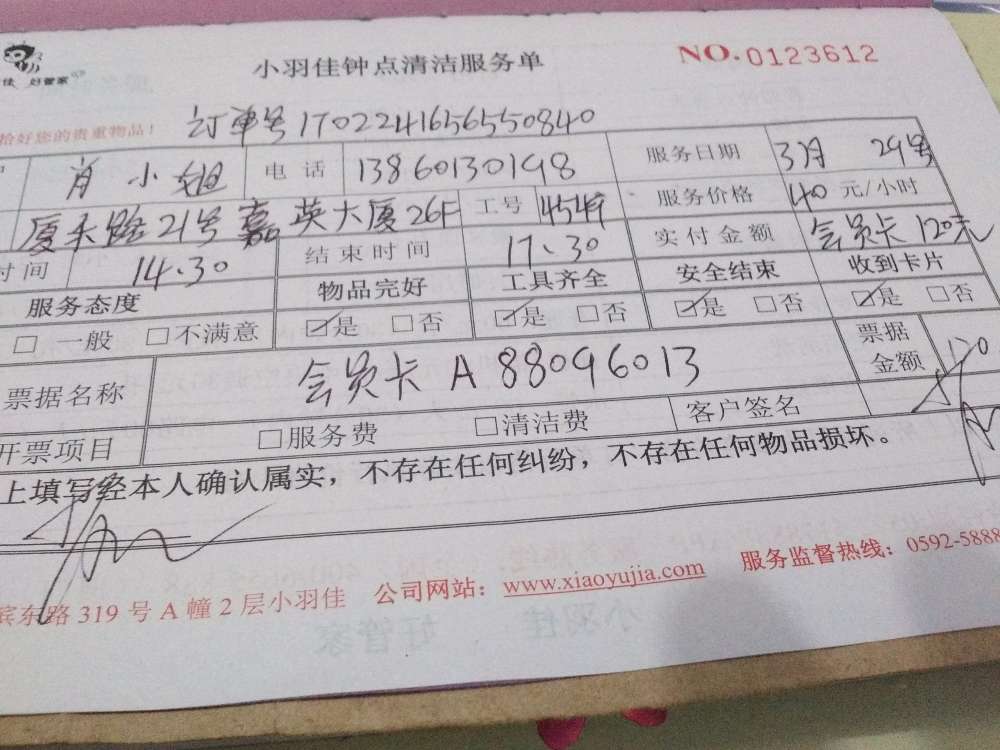 小羽佳钟点清洁服务单 NO.0123612
佳 好管家
拾好您的贵重物品! 订单号1702241656550840
肖小姐 电话 13860130198 服务日期 3月 29号
厦禾路21号嘉英大厦26F 工号 服务价格 40 元/小时
时间 14.30 结束时间 17.30 实付金额 会员卡120元
服务态度 物品完好 工具齐全 安全结束 收到卡片
□ 一般 □不满意 ☑是 □否 ☑是 □否 ☑是 □否 ☑是 □否
票据名称 会员卡 A 88096013 票据金额 120
开票项目 □服务费 □清洁费 客户签名
上填写经本人确认属实，不存在任何纠纷，不存在任何物品损坏。
滨东路 319 号 A 幢 2 层小羽佳 公司网站：www.xiaoyujia.com 服务监督热线：0592-5888
小羽佳 好管家